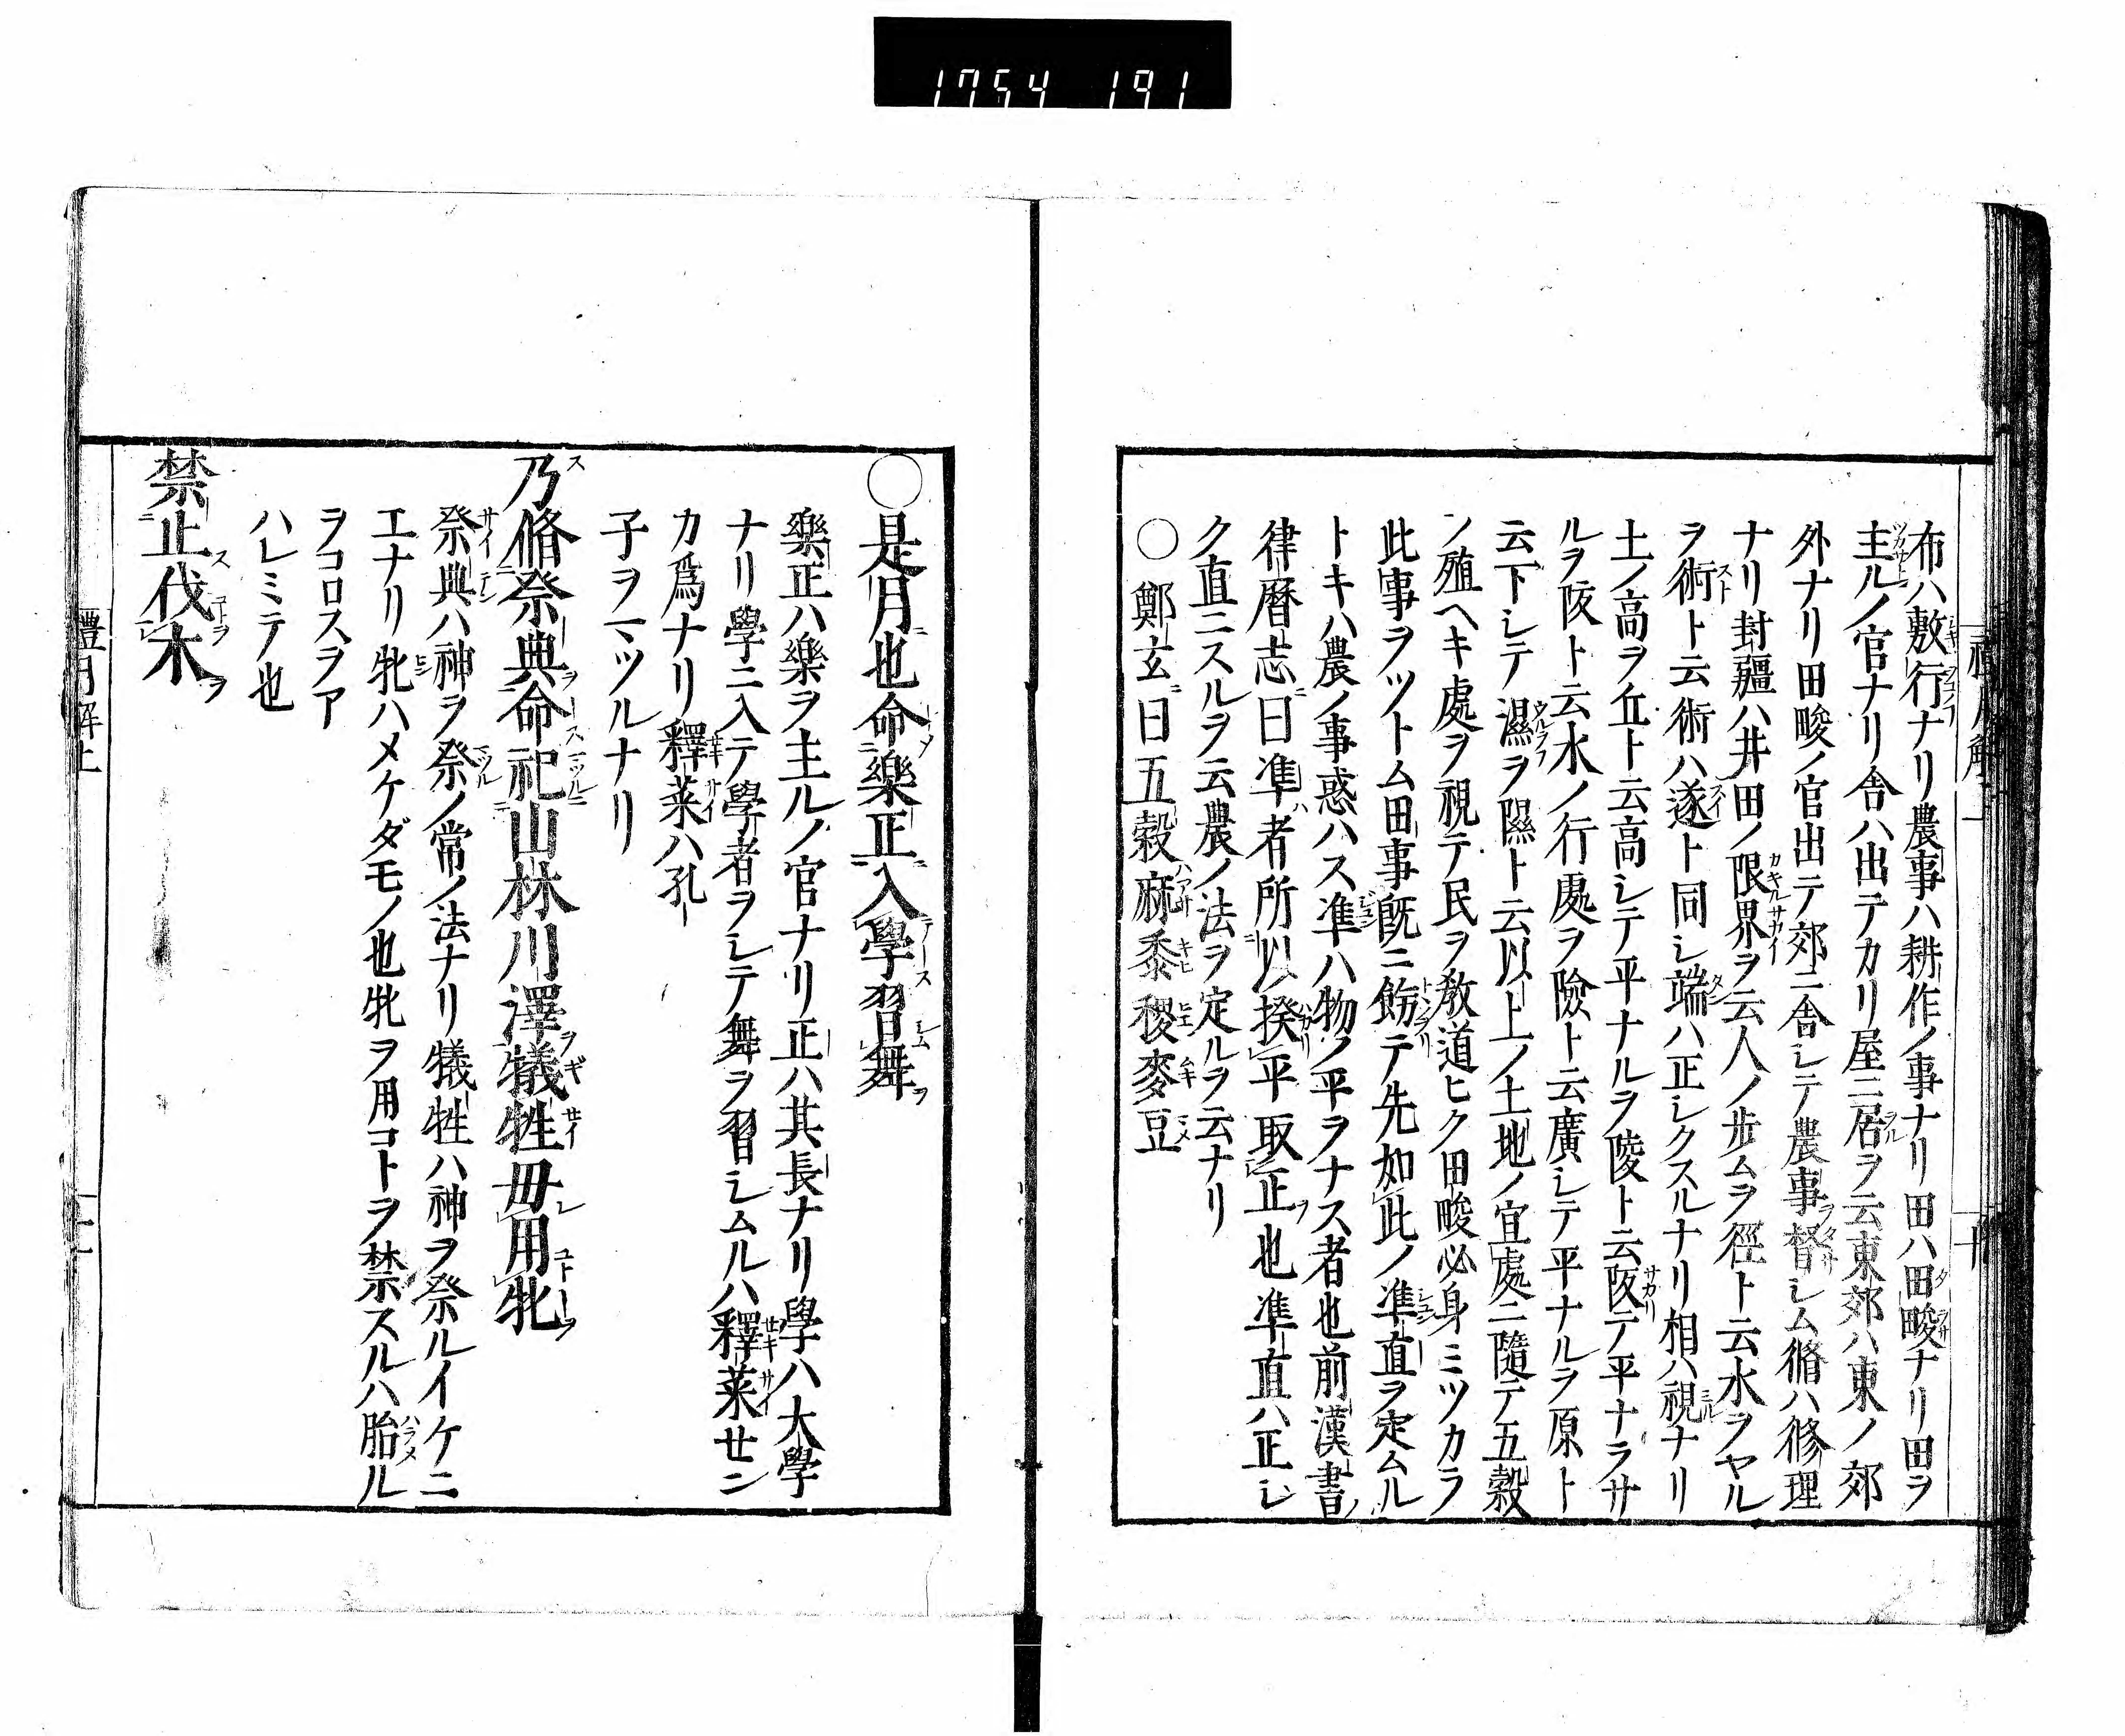 1754 191
布ハ敷行ナリ農事ハ耕作ノ事ナリ田ハ田畯ナリ田ヲ
主ルノ官ナリ舎ハ出テカリ屋ニ居ヲ云東郊ハ東ノ郊
外ナリ田畯ノ官出テ郊ニ舎シテ農事督シム脩ハ修理
ナリ封疆ハ井田ノ限界ヲ云人ノ歩ムヲ徑ト云水ヲヤル
ヲ術ト云術ハ遂ト同シ端ハ正シクスルナリ相ハ視ナリ
土ノ高ヲ丘ト云高シテ平ナルヲ陵ト云阪テ平ナラサ
ルヲ阪ト云水ノ行處ヲ險ト云廣シテ平ナルヲ原ト
云下シテ濕ヲ隰ト云以上ノ土地ノ宜處ニ隨テ五穀
ノ殖ヘキ處ヲ視テ民ヲ敎道ヒク田畯必身ミツカラ
此事ヲツトム田事既ニ飭テ先如此ノ準直ヲ定ムル
トキハ農ノ事惑ハス準ハ物ノ平ヲナス者也前漢書ノ
律暦志曰準者所以揆平取正也準直ハ正シ
ク直ニスルヲ云農ノ法ヲ定ルヲ云ナリ
〇鄭玄曰五穀麻黍稷麥豆
〇是月也命樂正入學習舞
樂正ハ樂ヲ主ルノ官ナリ正ハ其長ナリ學ハ大學
ナリ學ニ入テ學者ヲシテ舞ヲ習シムルハ釋菜せン
カ爲ナリ釋菜ハ孔
子ヲマツルナリ
乃脩祭典命祀山林川澤犧牲毋用牝
祭典ハ神ヲ祭ノ常ノ法ナリ犧牲ハ神ヲ祭ルイケニ
エナリ牝ハメケダモノ也牝ヲ用コトヲ禁スルハ胎ル
ヲコロスヲア
ハレミテ也
禁止伐木
禮月解上